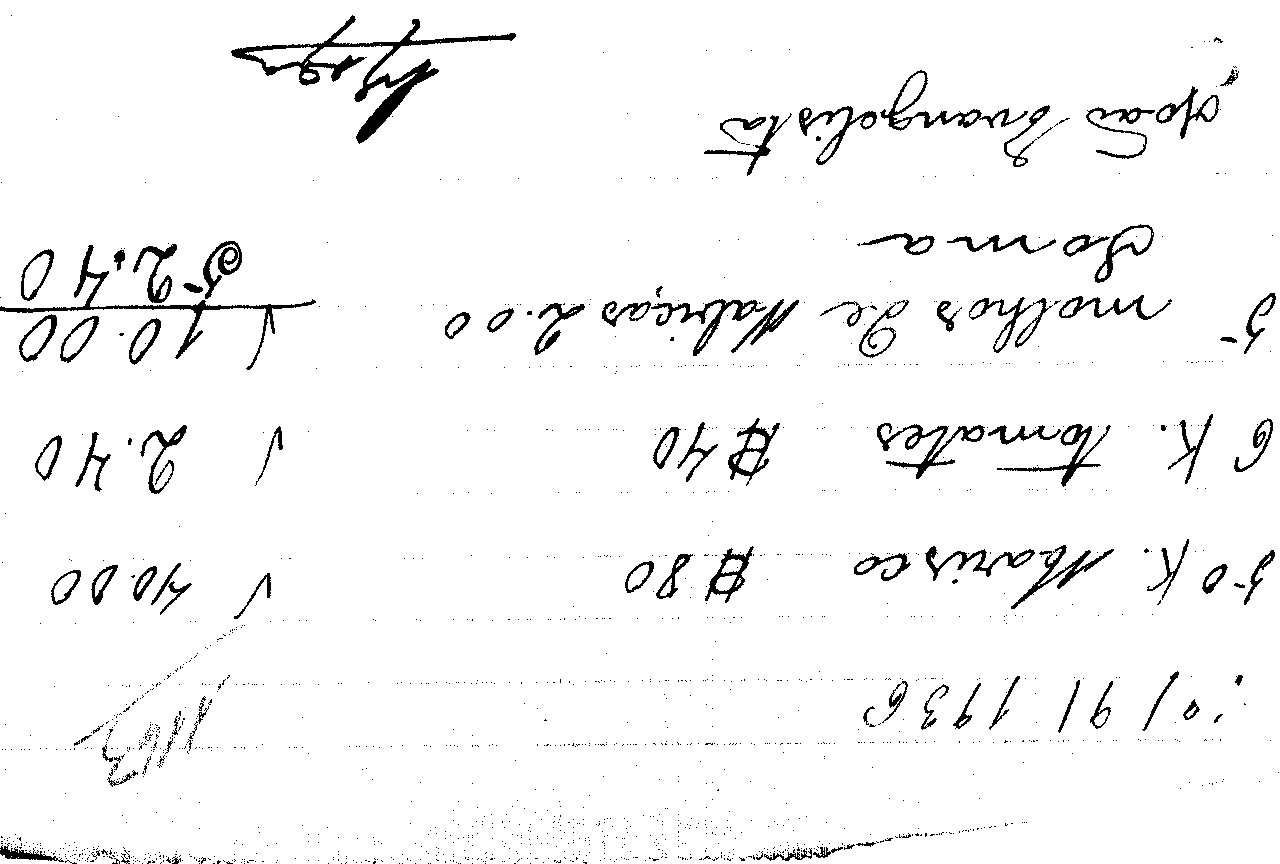 1163
1º / 9 / 1936
50 K. Marisco $80 √ 40.00
6 K. tomates $40 √ 2.40
5 molhos de Nabiças 2.00 √ 10.00
Soma 52.40
João Evangelista